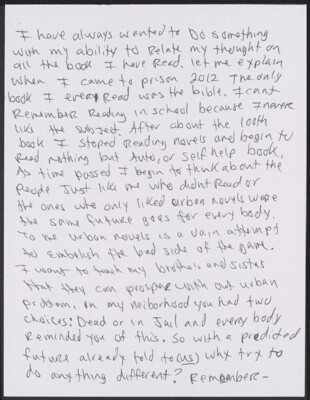 I have always wanted to Do something
with my ability to Relate my thought on
all the book I have Read. let me explain
when I came to prison 2012 The only
book I every Read was the bible. I cant
Remember Reading in school because I never
like the subject. After about the 100th
book I stoped Reading novels and begin to
Read nothing but Auto, or self help book,
As time passed I begin to think about the
People Just like me who didnt Read or
the ones who only liked urban novels were
the same future goes for every body.
To me urban novels is a vain attempt
to Embalish the bad side of the game.
I want to teach my brothers and sisters
that they can prosper with out urban
problem, in my neiborhood you had two
choices: Dead or in Jail and every body
Reminded you of this. So with a predicted
future already told to (us) why try to
do anything different? Remember-